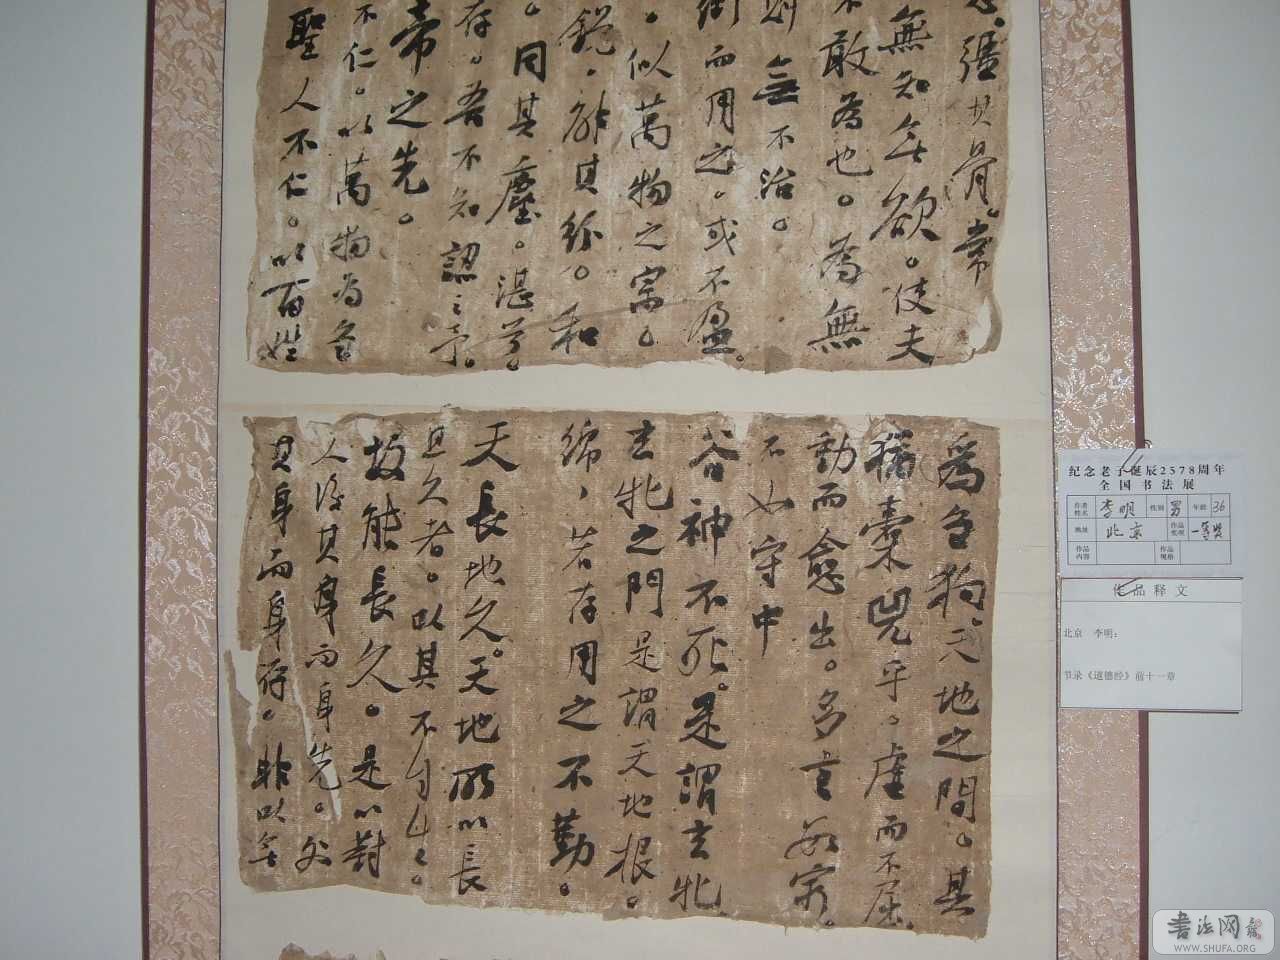 彊其骨。常
無知無欲。使夫
不敢為也。為無
則無不治。
而用之。或不盈。
。似萬物之宗。
銳。解其紛。和
。同其塵。湛兮。
存。吾不知誰之子。
帝之先。
不仁。以萬物為芻
聖人不仁。以百姓
為芻狗。天地之間。其
猶橐
乎。虛而不屈。
動而愈出。多言數窮。
不如守中
谷神不死。是謂玄牝
玄牝之門是謂天地根。
綿,若存用之不勤。
天長地久。天地所以長
且久者。以其不自生。
故能長久。是以
人後其身而身先。外
其身而身存。非以無
纪念老子诞辰2578周年
全国书法展
作者姓名 李明 性别 男 年龄 36
地址 北京 作品奖项 一等奖
作品内容 作品规格
作品释文
北京 李明:
节录《道德经》前十一章
書法网
WWW.SHUFA.ORG